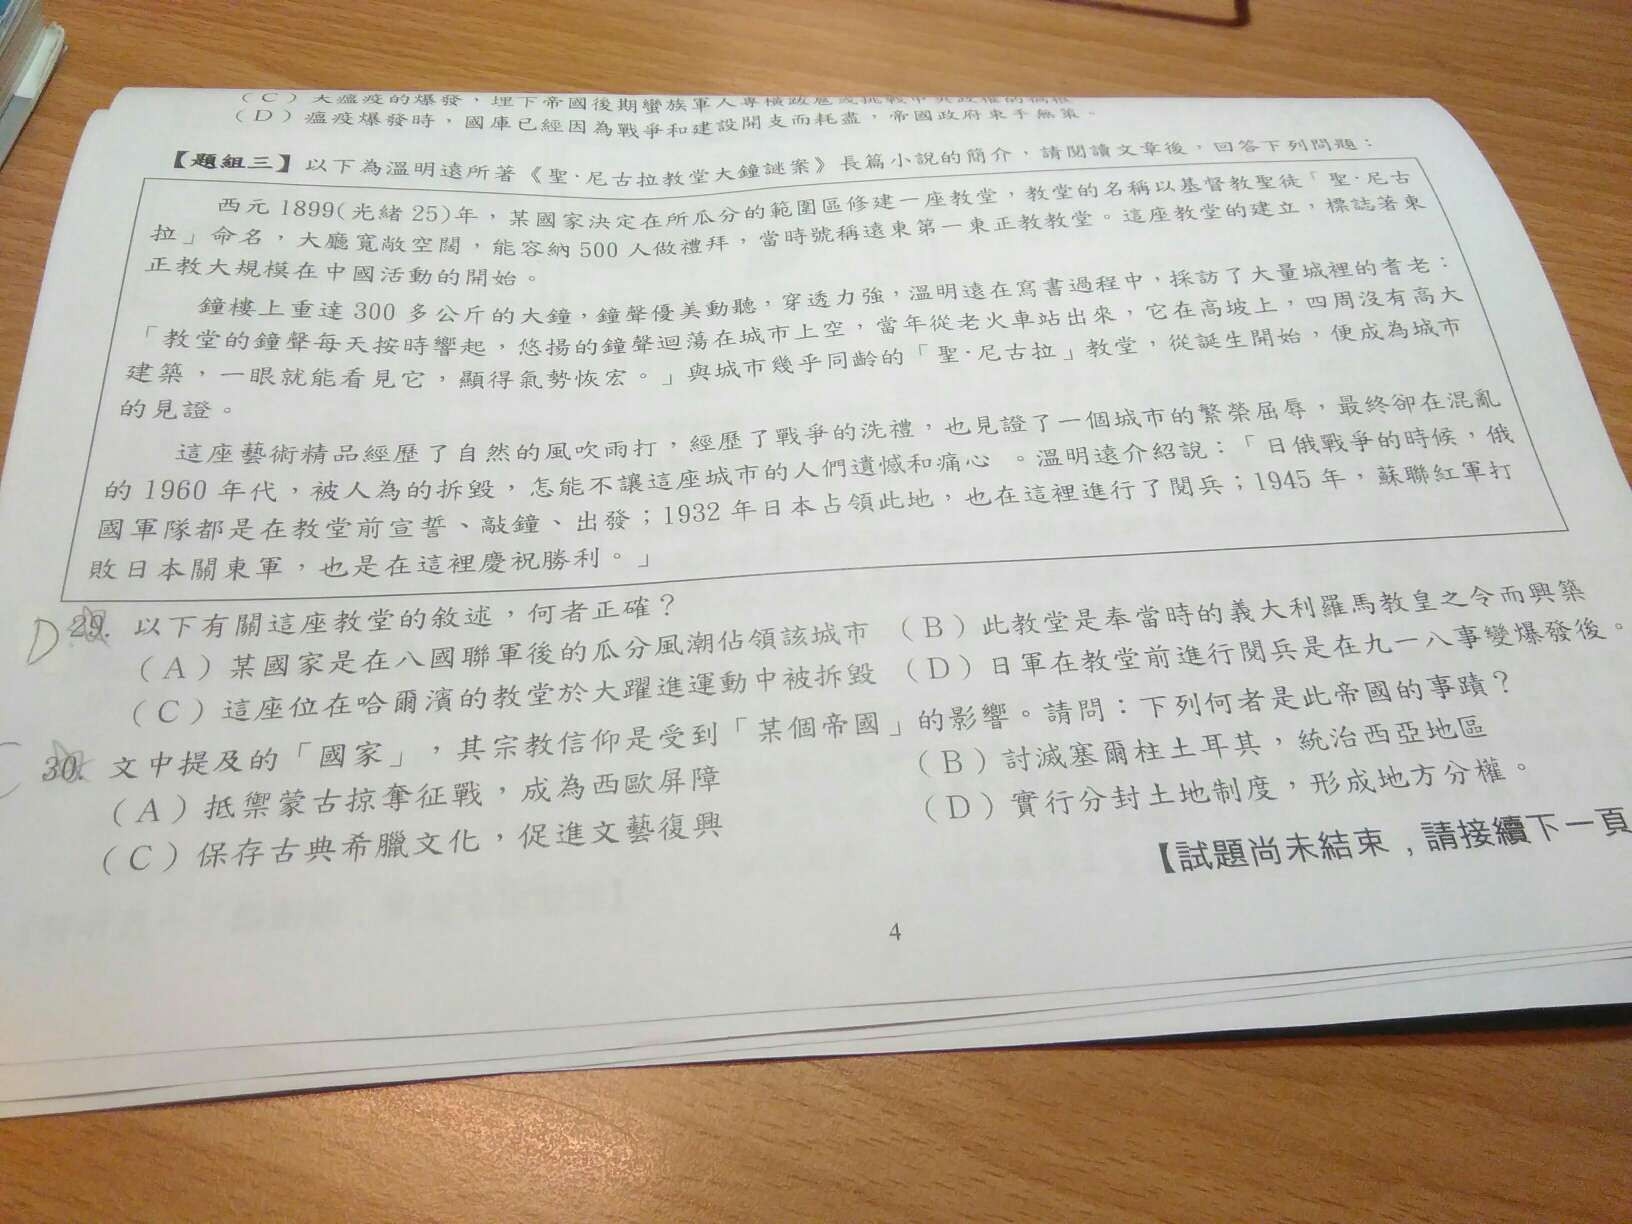 (C)大瘟疫的爆發，埋下帝國後期蠻族軍人專橫跋扈或挑戰中央政權的禍根
(D)瘟疫爆發時，國庫已經因為戰爭和建設開支而耗盡，帝國政府束手無策。
【題組三】以下為溫明遠所著《聖·尼古拉教堂大鐘謎案》長篇小說的簡介，請閱讀文章後，回答下列問題：
西元 1899(光緒 25)年，某國家決定在所瓜分的範圍區修建一座教堂，教堂的名稱以基督教聖徒「聖·尼古
拉」命名，大廳寬敞空闊，能容納 500 人做禮拜，當時號稱遠東第一東正教教堂。這座教堂的建立，標誌著東
正教大規模在中國活動的開始。
鐘樓上重達 300 多公斤的大鐘，鐘聲優美動聽，穿透力強，溫明遠在寫書過程中，採訪了大量城裡的耆老：
「教堂的鐘聲每天按時響起，悠揚的鐘聲迴蕩在城市上空，當年從老火車站出來，它在高坡上，四周沒有高大
建築，一眼就能看見它，顯得氣勢恢宏。」與城市幾乎同齡的「聖·尼古拉」教堂，從誕生開始，便成為城市
的見證。
這座藝術精品經歷了自然的風吹雨打，經歷了戰爭的洗禮，也見證了一個城市的繁榮屈辱，最終卻在混亂
的 1960 年代，被人為的拆毀，怎能不讓這座城市的人們遺憾和痛心 。溫明遠介紹說：「日俄戰爭的時候，俄
國軍隊都是在教堂前宣誓、敲鐘、出發；1932 年日本占領此地，也在這裡進行了閱兵；1945 年，蘇聯紅軍打
敗日本關東軍，也是在這裡慶祝勝利。」
D 29. 以下有關這座教堂的敘述，何者正確？
(A)某國家是在八國聯軍後的瓜分風潮佔領該城市 (B)此教堂是奉當時的義大利羅馬教皇之令而興築
(C)這座位在哈爾濱的教堂於大躍進運動中被拆毀 (D)日軍在教堂前進行閱兵是在九一八事變爆發後。
C 30. 文中提及的「國家」，其宗教信仰是受到「某個帝國」的影響。請問：下列何者是此帝國的事蹟？
(A)抵禦蒙古掠奪征戰，成為西歐屏障 (B)討滅塞爾柱土耳其，統治西亞地區
(C)保存古典希臘文化，促進文藝復興 (D)實行分封土地制度，形成地方分權。
【試題尚未結束，請接續下一頁
4